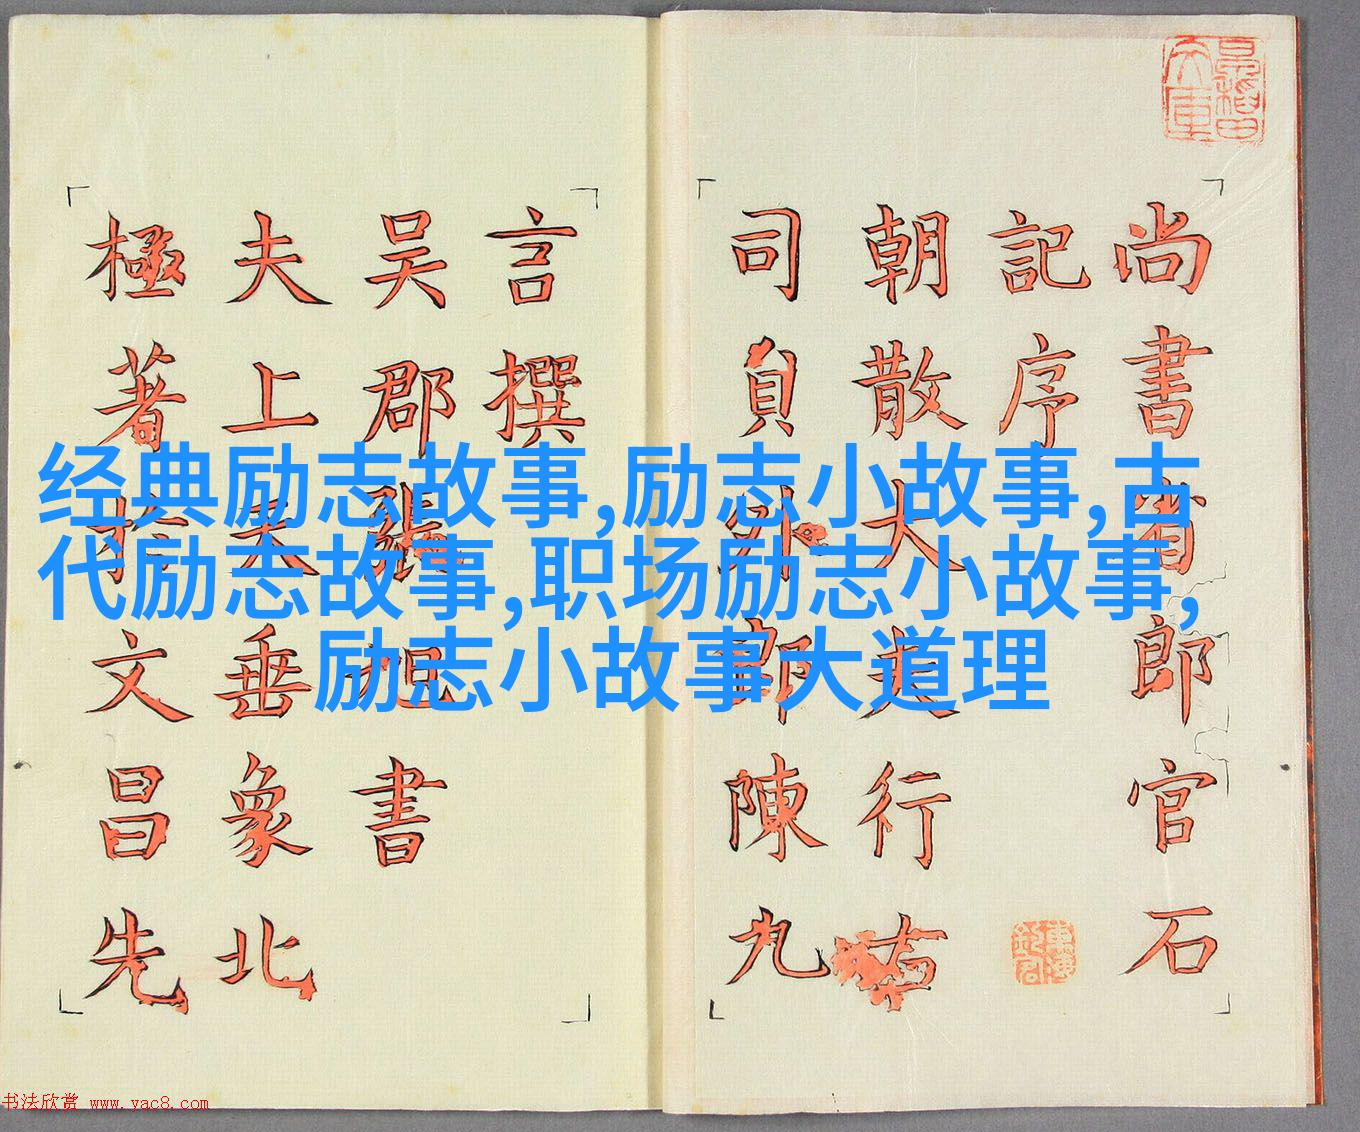 尚書省郎官石
記序
朝散大夫行右
司員外郎陳九
言撰
吴郡張旭書
夫上天垂象北
極著於文昌先
经典励志故事,励志小故事,古
代励志故事,职场励志小故事,
励志小故事大道理
书法欣赏 www.yac8.com